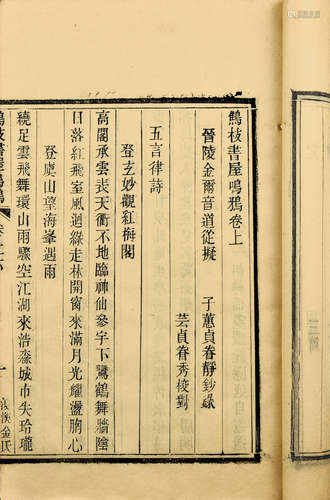 鷦枝書屋鳴鴉卷上
晉陵金爾音道從擬
子蕙貞眷靜鈔錄
芸貞眷秀校對
五言律詩
登玄妙觀紅梅閣
高閣承雲表天衢不地臨神仙參宇下鸞鶴舞牆陰
日落紅飛室風迴綠走林開窗來滿月光耀盪胸心
登虞山望海峯遇雨
繞足雲飛舞環山雨驟空江湖來浩淼城市失玲瓏